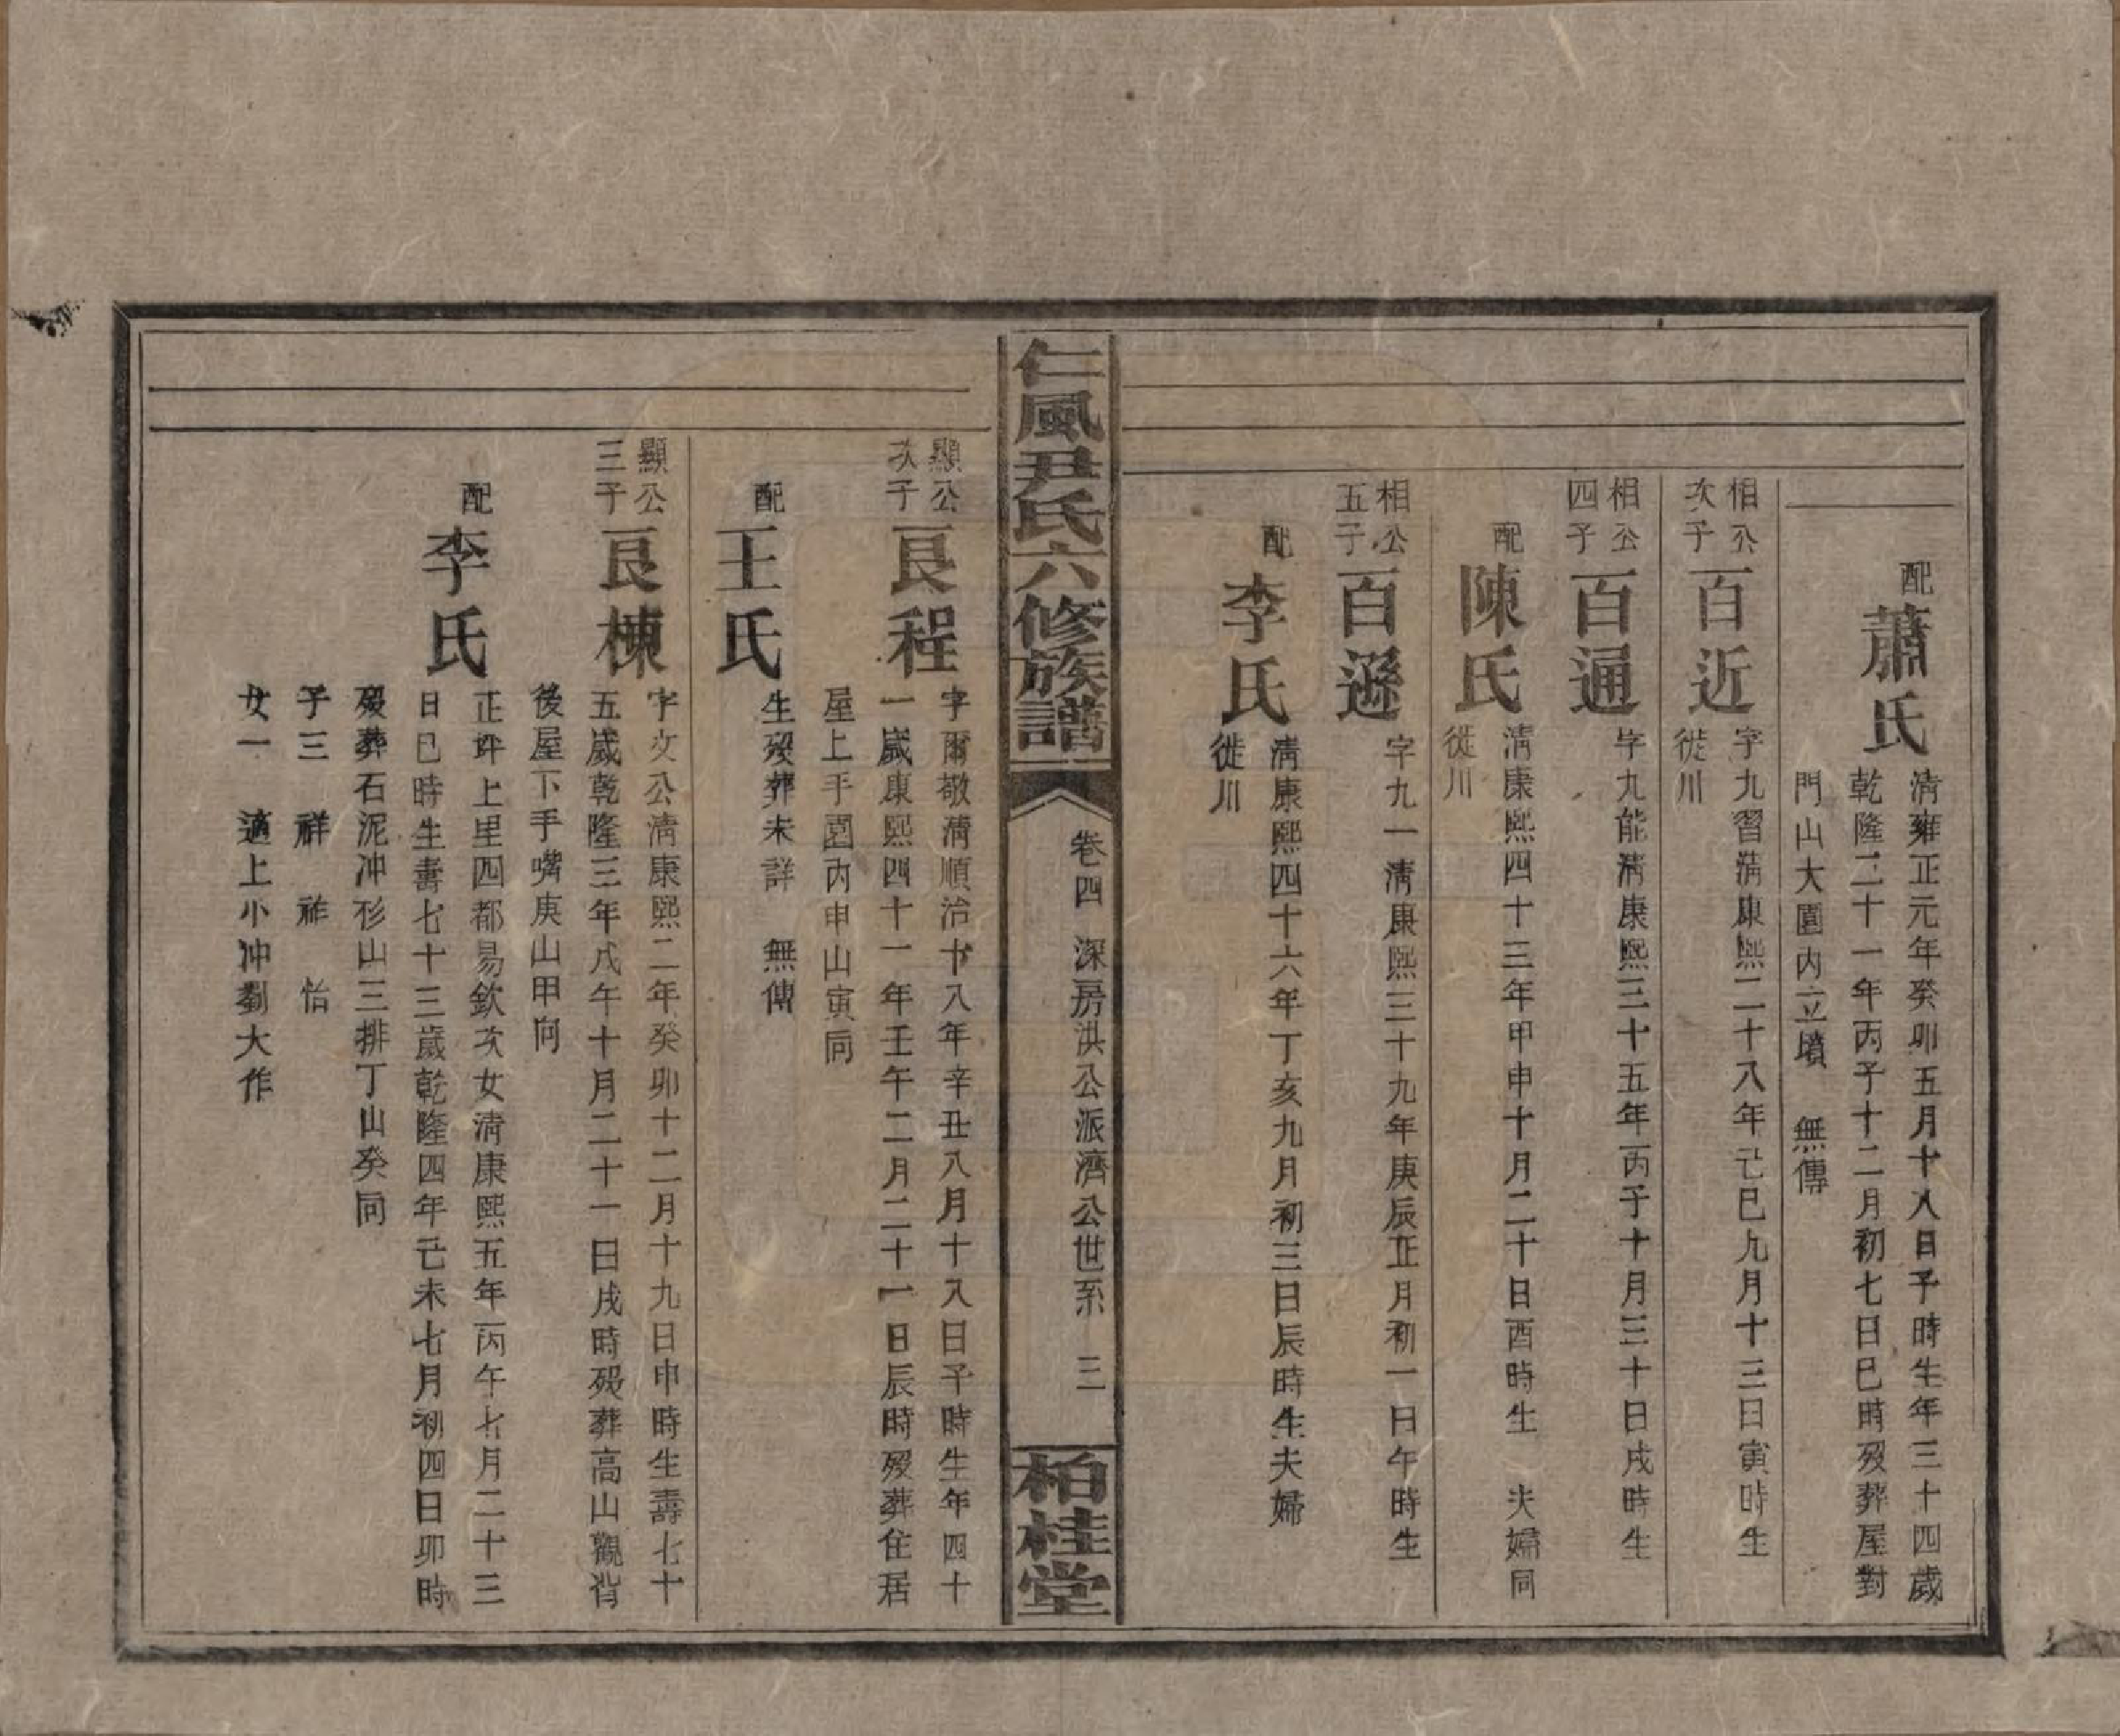 配蕭氏
清雍正元年癸卯五月十八日子時生年三十四歲
乾隆二十一年丙子十二月初七日巳時歿葬屋對
門山大園內立墳 無傳
相公次子百近
字九習清康熙二十八年己巳九月十三日寅時生
從川
相公四子百通
字九能清康熙三十五年丙子十月三十日戌時生
配陳氏
清康熙四十三年甲申十月二十日酉時生 夫婦同
從川
相公五子百遜
字九一清康熙三十九年庚辰正月初一日午時生
配李氏
清康熙四十六年丁亥九月初三日辰時生夫婦
從川
仁風尹氏六修族譜
卷四 深房洪公派濟公世系 三
柏桂堂
顯公次子良程
字爾敬清順治十八年辛丑八月十八日子時生年四十
一歲康熙四十一年壬午二月二十一日辰時歿葬住居
屋上手園內申山寅同
配王氏
生歿葬未詳 無傳
顯公三子良棟
字文公清康熙二年癸卯十二月十九日申時生壽七十
五歲乾隆三年戊午十月二十一日戌時歿葬高山觀背
後屋下手嘴庚山甲向
配李氏
正坪上里四都易欽次女清康熙五年丙午七月二十三
日巳時生壽七十三歲乾隆四年己未七月初四日卯時
歿葬石泥冲杉山三排丁山癸同
子三 祥 祚 怡
女一 適上小冲劉大作